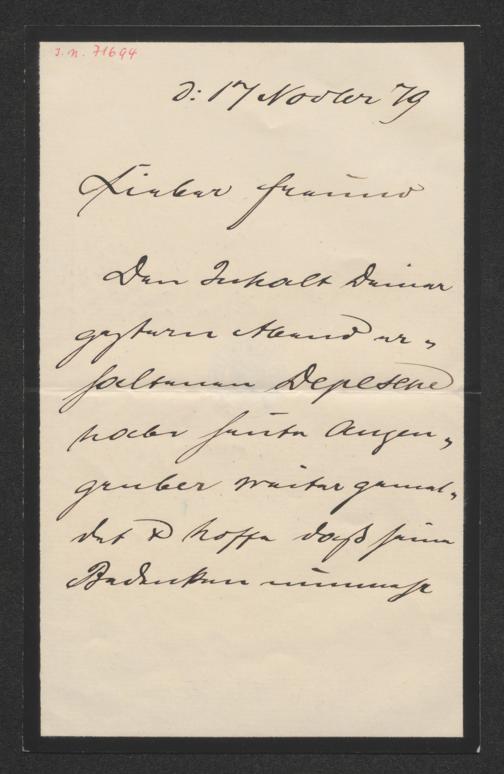 I. N. 71694
d: 17 Novber 79
Lieber Freund
Den Inhalt Deiner
gestern Abend er„
haltenen Depesche
habe heute Anzen„
gruber weiter gemel„
det & hoffe daß seine
Bedenken nunmehr